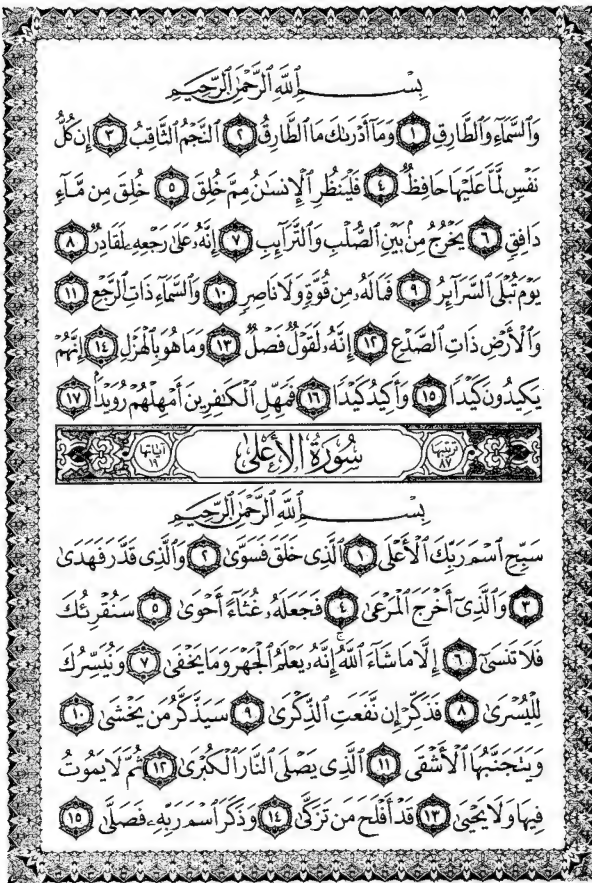 بِسْمِ ٱللَّهِ ٱلرَّحْمَٰنِ ٱلرَّحِيمِ
وَٱلسَّمَآءِ وَٱلطَّارِقِ ١ وَمَآ أَدْرَىٰكَ مَا ٱلطَّارِقُ ٢ ٱلنَّجْمُ ٱلثَّاقِبُ ٣ إِن كُلُّ
نَفْسٍ لَّمَّا عَلَيْهَا حَافِظٌ ٤ فَلْيَنظُرِ ٱلْإِنسَٰنُ مِمَّ خُلِقَ ٥ خُلِقَ مِن مَّآءٍ
دَافِقٍ ٦ يَخْرُجُ مِنۢ بَيْنِ ٱلصُّلْبِ وَٱلتَّرَآئِبِ ٧ إِنَّهُۥ عَلَىٰ رَجْعِهِۦ لَقَادِرٌ ٨
يَوْمَ تُبْلَى ٱلسَّرَآئِرُ ٩ فَمَا لَهُۥ مِن قُوَّةٍ وَلَا نَاصِرٍ ١٠ وَٱلسَّمَآءِ ذَاتِ ٱلرَّجْعِ ١١
وَٱلْأَرْضِ ذَاتِ ٱلصَّدْعِ ١٢ إِنَّهُۥ لَقَوْلٌ فَصْلٌ ١٣ وَمَا هُوَ بِٱلْهَزْلِ ١٤ إِنَّهُمْ
يَكِيدُونَ كَيْدًا ١٥ وَأَكِيدُ كَيْدًا ١٦ فَمَهِّلِ ٱلْكَٰفِرِينَ أَمْهِلْهُمْ رُوَيْدًۢا ١٧
ترتيبها ٨٧ سُورَةُ الْأَعْلَىٰ آياتها ١٩
بِسْمِ ٱللَّهِ ٱلرَّحْمَٰنِ ٱلرَّحِيمِ
سَبِّحِ ٱسْمَ رَبِّكَ ٱلْأَعْلَى ١ ٱلَّذِى خَلَقَ فَسَوَّىٰ ٢ وَٱلَّذِى قَدَّرَ فَهَدَىٰ
٣ وَٱلَّذِىٓ أَخْرَجَ ٱلْمَرْعَىٰ ٤ فَجَعَلَهُۥ غُثَآءً أَحْوَىٰ ٥ سَنُقْرِئُكَ
فَلَا تَنسَىٰٓ ٦ إِلَّا مَا شَآءَ ٱللَّهُ ۚ إِنَّهُۥ يَعْلَمُ ٱلْجَهْرَ وَمَا يَخْفَىٰ ٧ وَنُيَسِّرُكَ
لِلْيُسْرَىٰ ٨ فَذَكِّرْ إِن نَّفَعَتِ ٱلذِّكْرَىٰ ٩ سَيَذَّكَّرُ مَن يَخْشَىٰ ١٠
وَيَتَجَنَّبُهَا ٱلْأَشْقَى ١١ ٱلَّذِى يَصْلَى ٱلنَّارَ ٱلْكُبْرَىٰ ١٢ ثُمَّ لَا يَمُوتُ
فِيهَا وَلَا يَحْيَىٰ ١٣ قَدْ أَفْلَحَ مَن تَزَكَّىٰ ١٤ وَذَكَرَ ٱسْمَ رَبِّهِۦ فَصَلَّىٰ ١٥